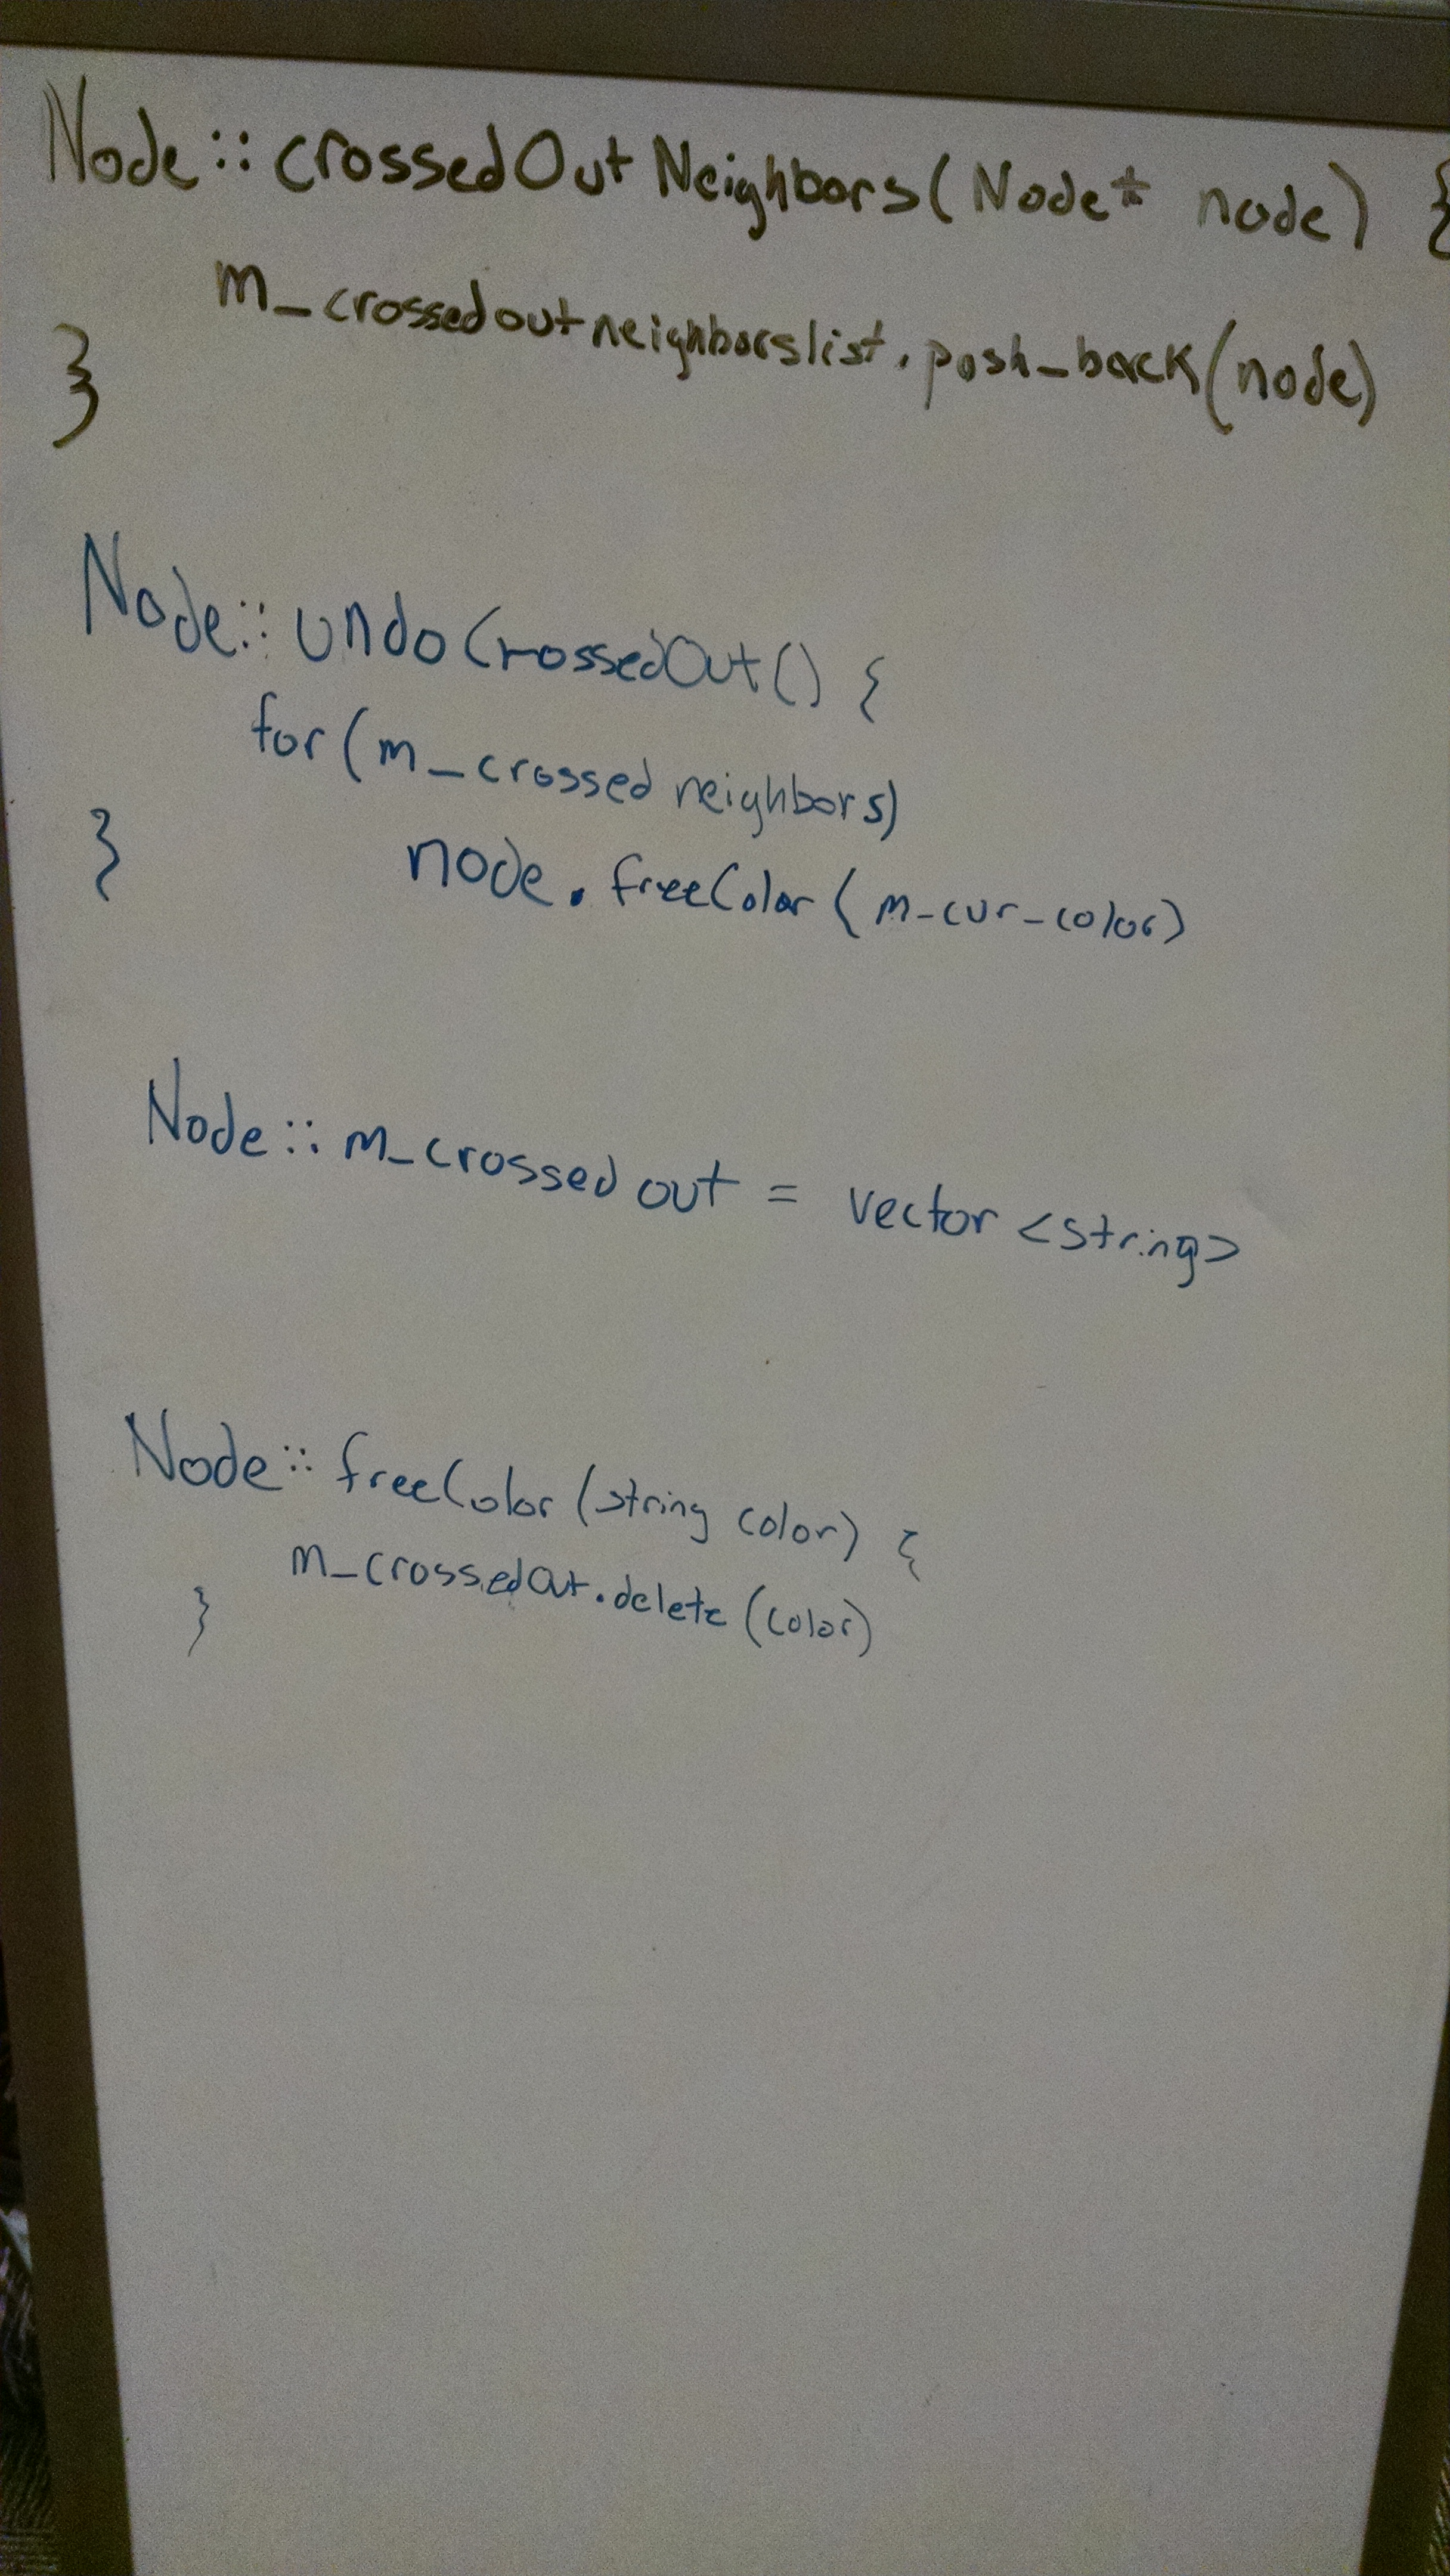 Node::crossedOutNeighbors(Node* node) {
m_crossedoutneighborslist.push_back(node)
}
Node::undoCrossedOut() {
for(m_crossed neighbors)
} node.freeColor(m_cur_color)
Node::m_crossed out = vector <string>
Node::freeColor(string color) {
m_crossedOut.delete(color)
}